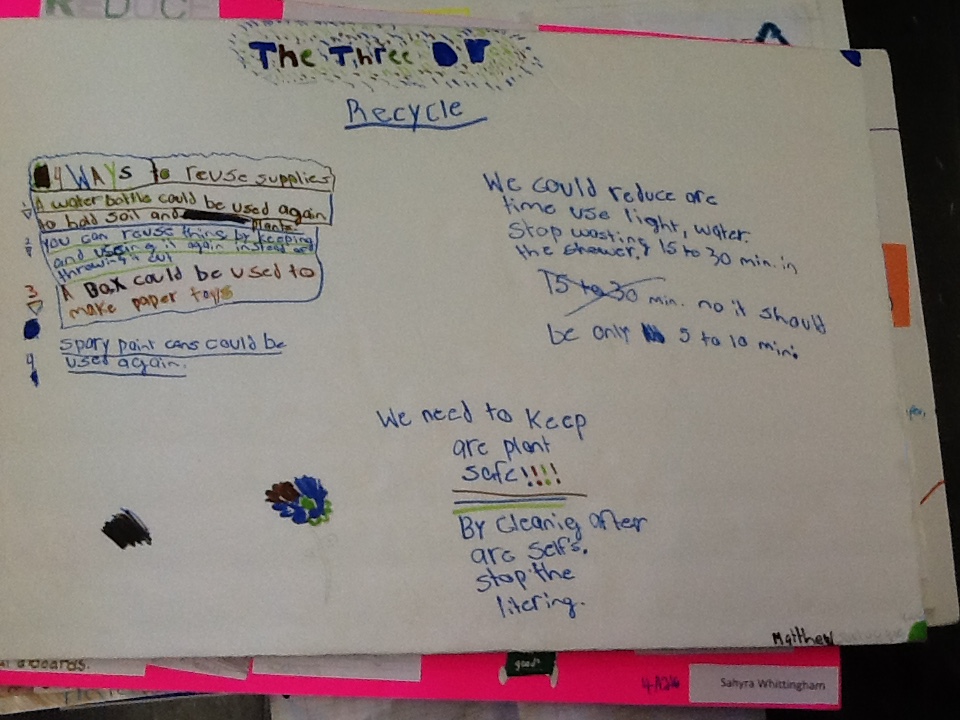 REDUC
The Three R
Recycle
4 WAYS to reuse supplies
1
A water bottle could be used again
to hold soil and plants.
2
you can reuse thins by keeping
and useing it again instead of
throwing it out
3
A Box could be used to
make paper toys
4
spary paint cans could be
used again.
We could reduce are
time use light, water.
Stop wasting 15 to 30 min. in
the shower!
15 to 30 min. no it should
be only 5 to 10 min.
We need to keep
are plant
safe!!!!
By cleanig after
are selfs.
stop the
litering.
Matthew
boards.
good
4/12
Sahyra Whittingham